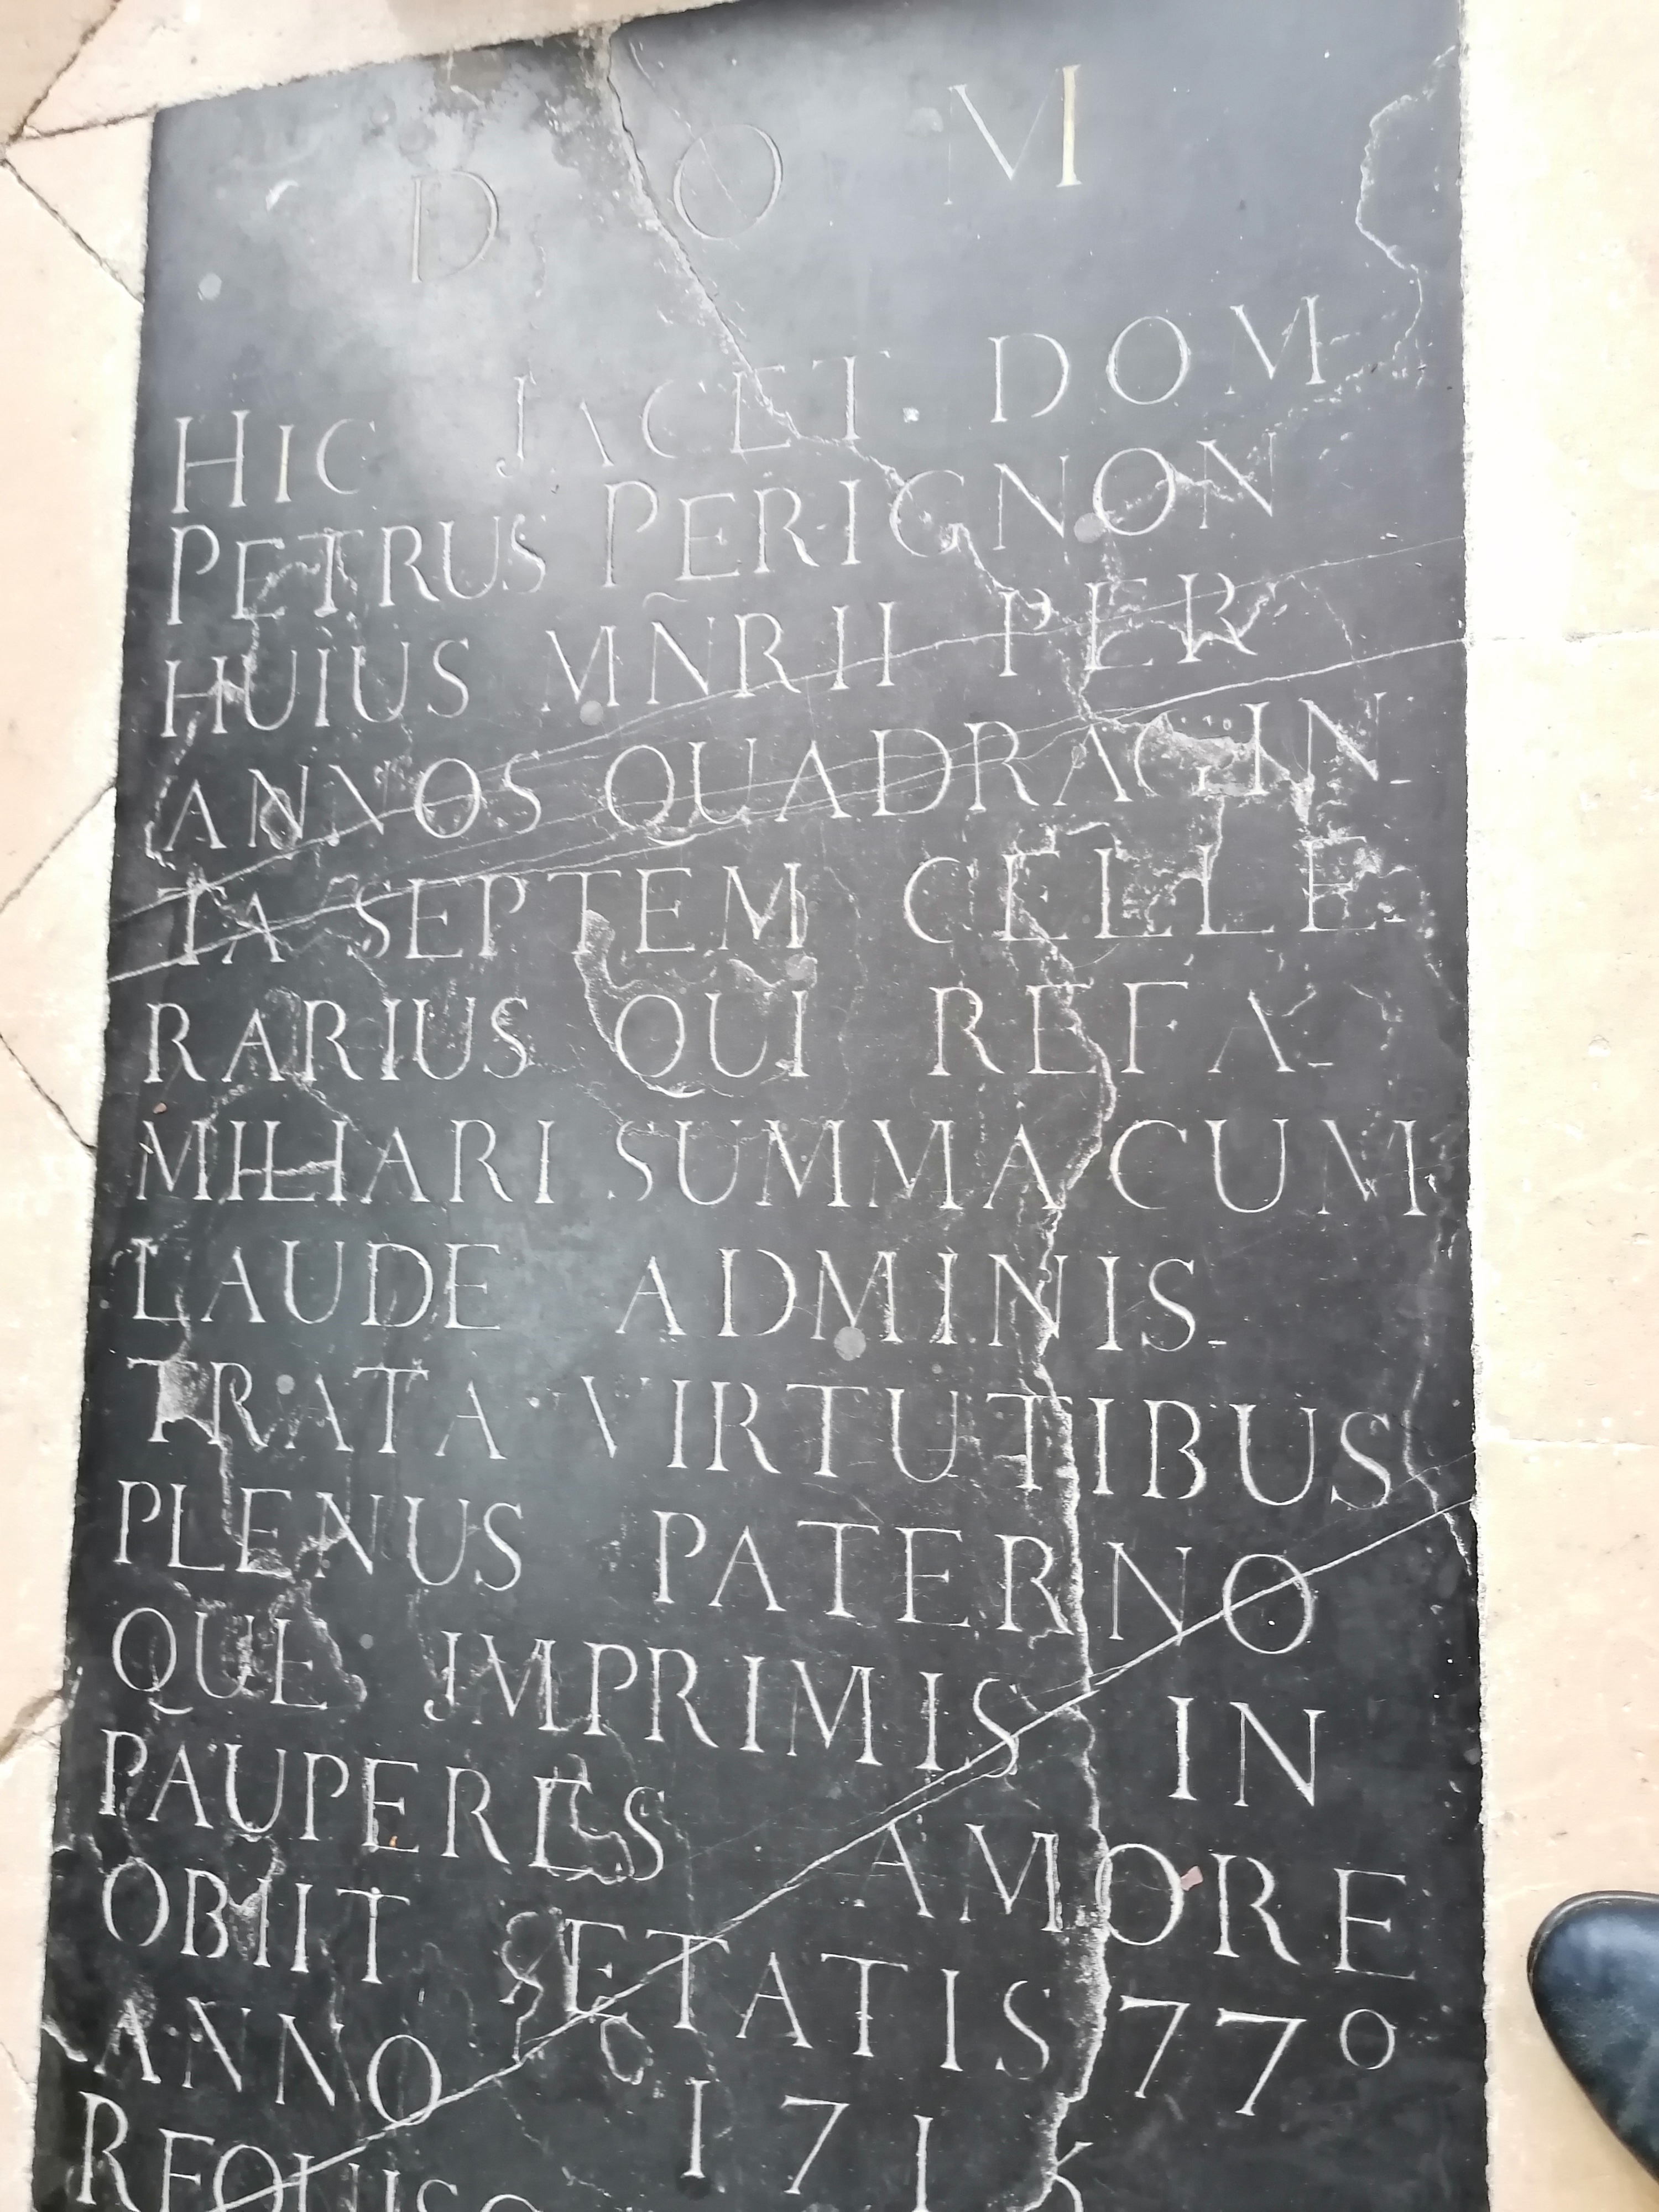 D O M
HIC JACET. DOM
PETRUS PERIGNON
HUIUS MÑRII PER
ANNOS QUADRAGIN-
TA SEPTEM CELLE-
RARIUS QUI REFA-
MILIARI SUMMA CUM
LAUDE ADMINIS-
TRATA VIRTUTIBUS
PLENUS PATERNO
QUE JMPRIMIS IN
PAUPERES AMORE
OBIIT ÆTATIS 77º
ANNO 1715